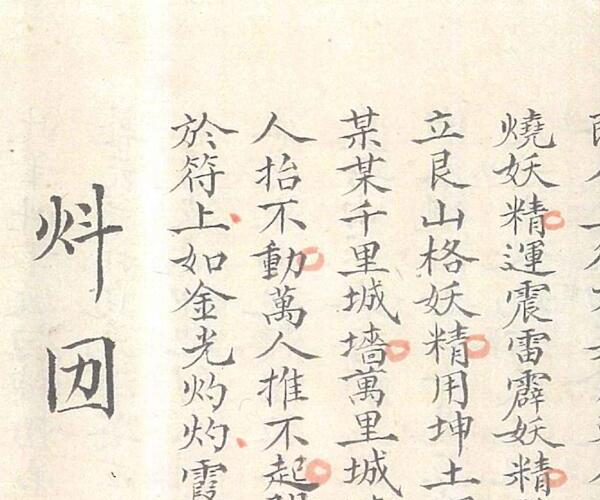 燒妖精運震雷霹妖精
立艮山格妖精用坤土
某某千里城墻萬里城
人抬不動萬人推不起
於符上如金光灼灼霞
炓囨